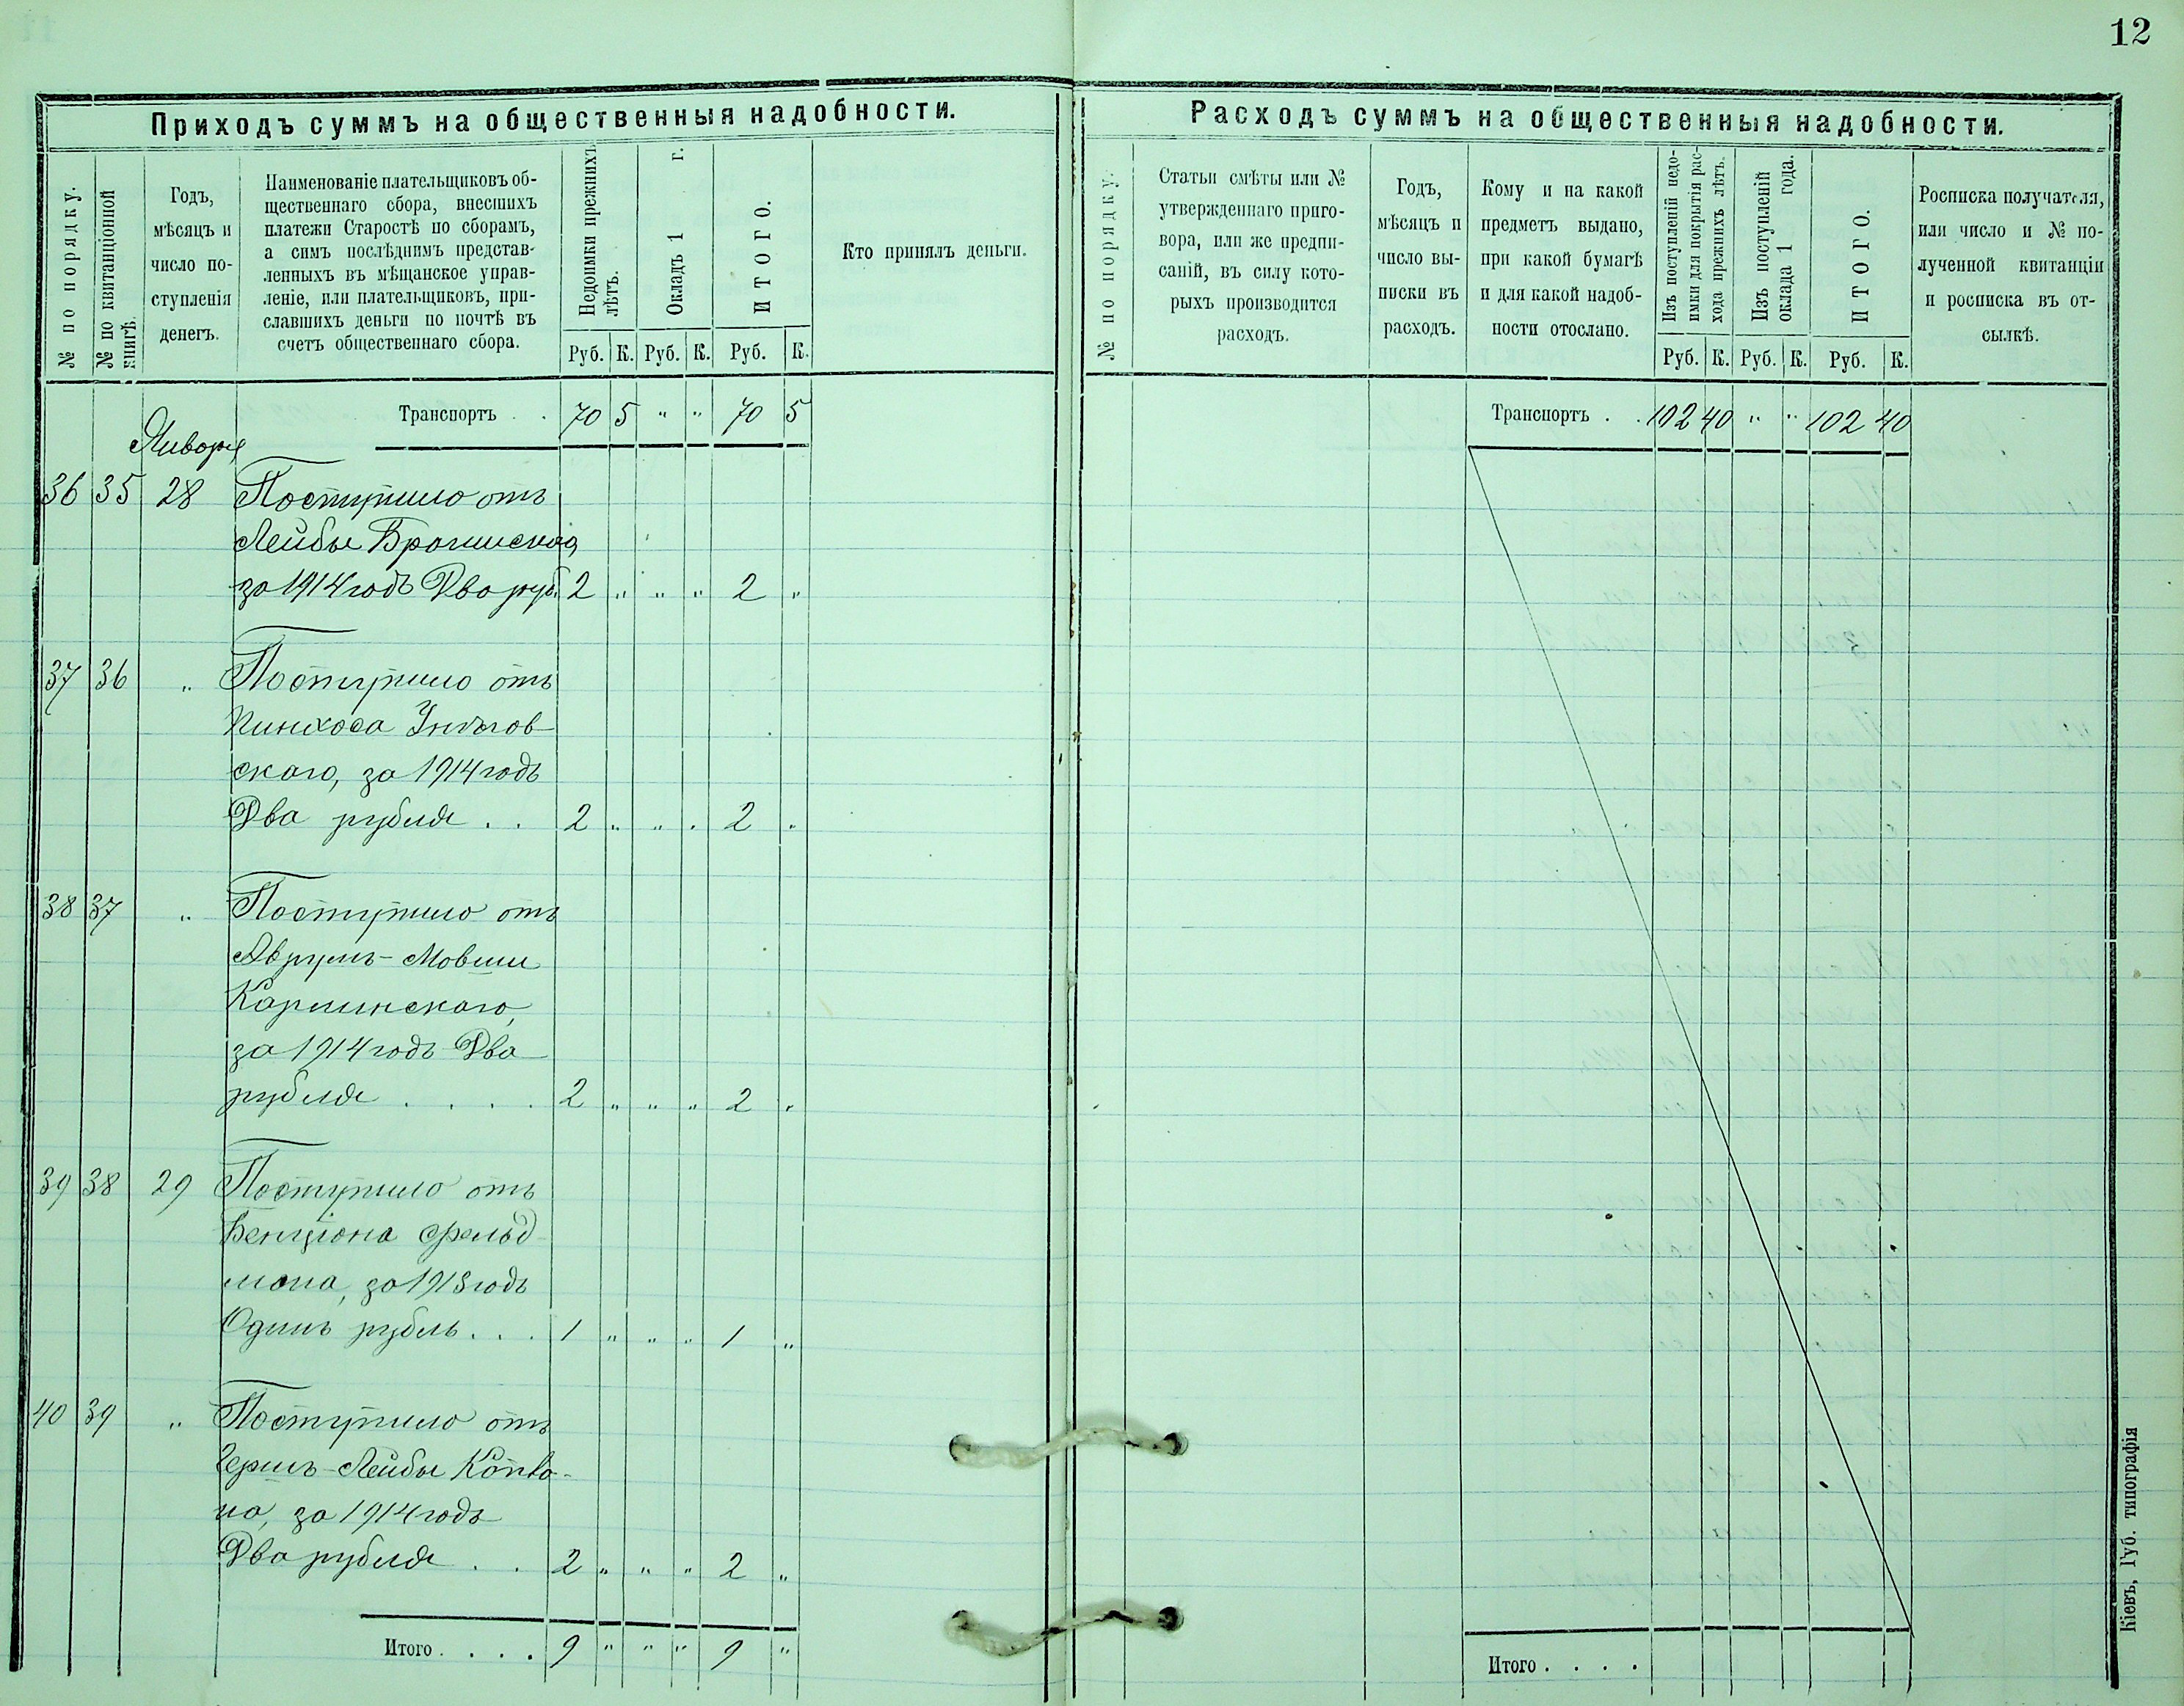 12
Приходъ суммъ на общественныя надобности.
№ по порядку.
№ по квитанціонной книгѣ.
Годъ,
мѣсяцъ и
число по-
ступленія
денегъ.
Наименованіе плательщиковъ об-
щественнаго сбора, внесшихъ
платежи Старостѣ по сборамъ,
а симъ послѣднимъ представ-
ленныхъ въ мѣщанское управ-
леніе, или плательщиковъ, при-
славшихъ деньги по почтѣ въ
счетъ общественнаго сбора.
Недоимки прежнихъ лѣтъ.
Окладъ 1 г.
ИТОГО.
Руб. К. Руб. К. Руб. К.
Кто принялъ деньги.
Транспортъ . . 70 5 " " 70 5
Января
36 35 28 Поступило отъ
Лейбы
за 1914 годъ Два руб. 2 " " " 2 "
37 36 " Поступило отъ
Пинхоса
скаго, за 1914 годъ
Два рубля . . 2 " " " 2 "
38 37 " Поступило отъ
Аврумъ-Мовши
Карлинскаго,
за 1914 годъ Два
рубля . . . . 2 " " " 2 "
39 38 29 Поступило отъ
Бенціона Фельд-
мана, за 1913 годъ
Одинъ рубль . . . 1 " " " 1 "
40 39 " Поступило отъ
Герша-Лейбы
на, за 1914 годъ
Два рубля . . 2 " " " 2 "
Итого . . . . 9 " " " 9 "
Расходъ суммъ на общественныя надобности.
№ по порядку.
Статьи смѣты или №
утвержденнаго приго-
вора, или же предпи-
саній, въ силу кото-
рыхъ производится
расходъ.
Годъ,
мѣсяцъ и
число вы-
писки въ
расходъ.
Кому и на какой
предметъ выдано,
при какой бумагѣ
и для какой надоб-
ности отослано.
Изъ поступленій недо-
имки для покрытія рас-
хода прежнихъ лѣтъ.
Изъ поступленій
оклада 1 года.
ИТОГО.
Руб. К. Руб. К. Руб. К.
Росписка получателя,
или число и № по-
лученной квитанціи
и росписка въ от-
сылкѣ.
Транспортъ . . 102 40 " " 102 40
Итого . . . .
Кіевъ, Губ. типографія